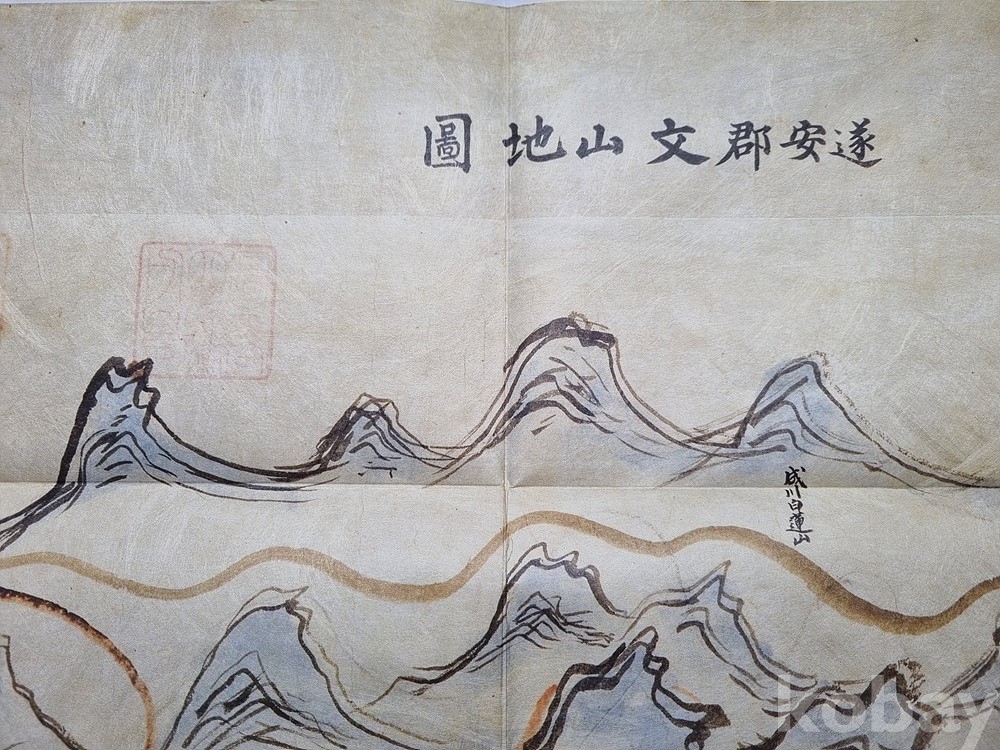 遂安郡文山地圖
成川白蓮山
kobay